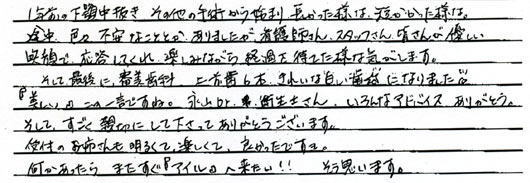 1年前の下顎中抜き その他の手術から始まり 長かった様な、短かかった様な。
途中、色々 不安なこととか、ありましたが 看護師さん、スタッフさん、皆さんが優しい
笑顔で、応答してくれ、楽しみながら 経過を待てた様な気がします。
そして最後に、審美歯科 上六番6本、きれいな白い歯様になりました
『美しい』の この一言ですね。永山Dr. 衛生士さん、いろんなアドバイス ありがとう。
そして、すごく 親切にして下さって ありがとうございます。
受付のお姉さんも 明るくて、楽しくて、良かったですョ。
何かあったら またすぐ『アイル』へ来たい!! そう思います。